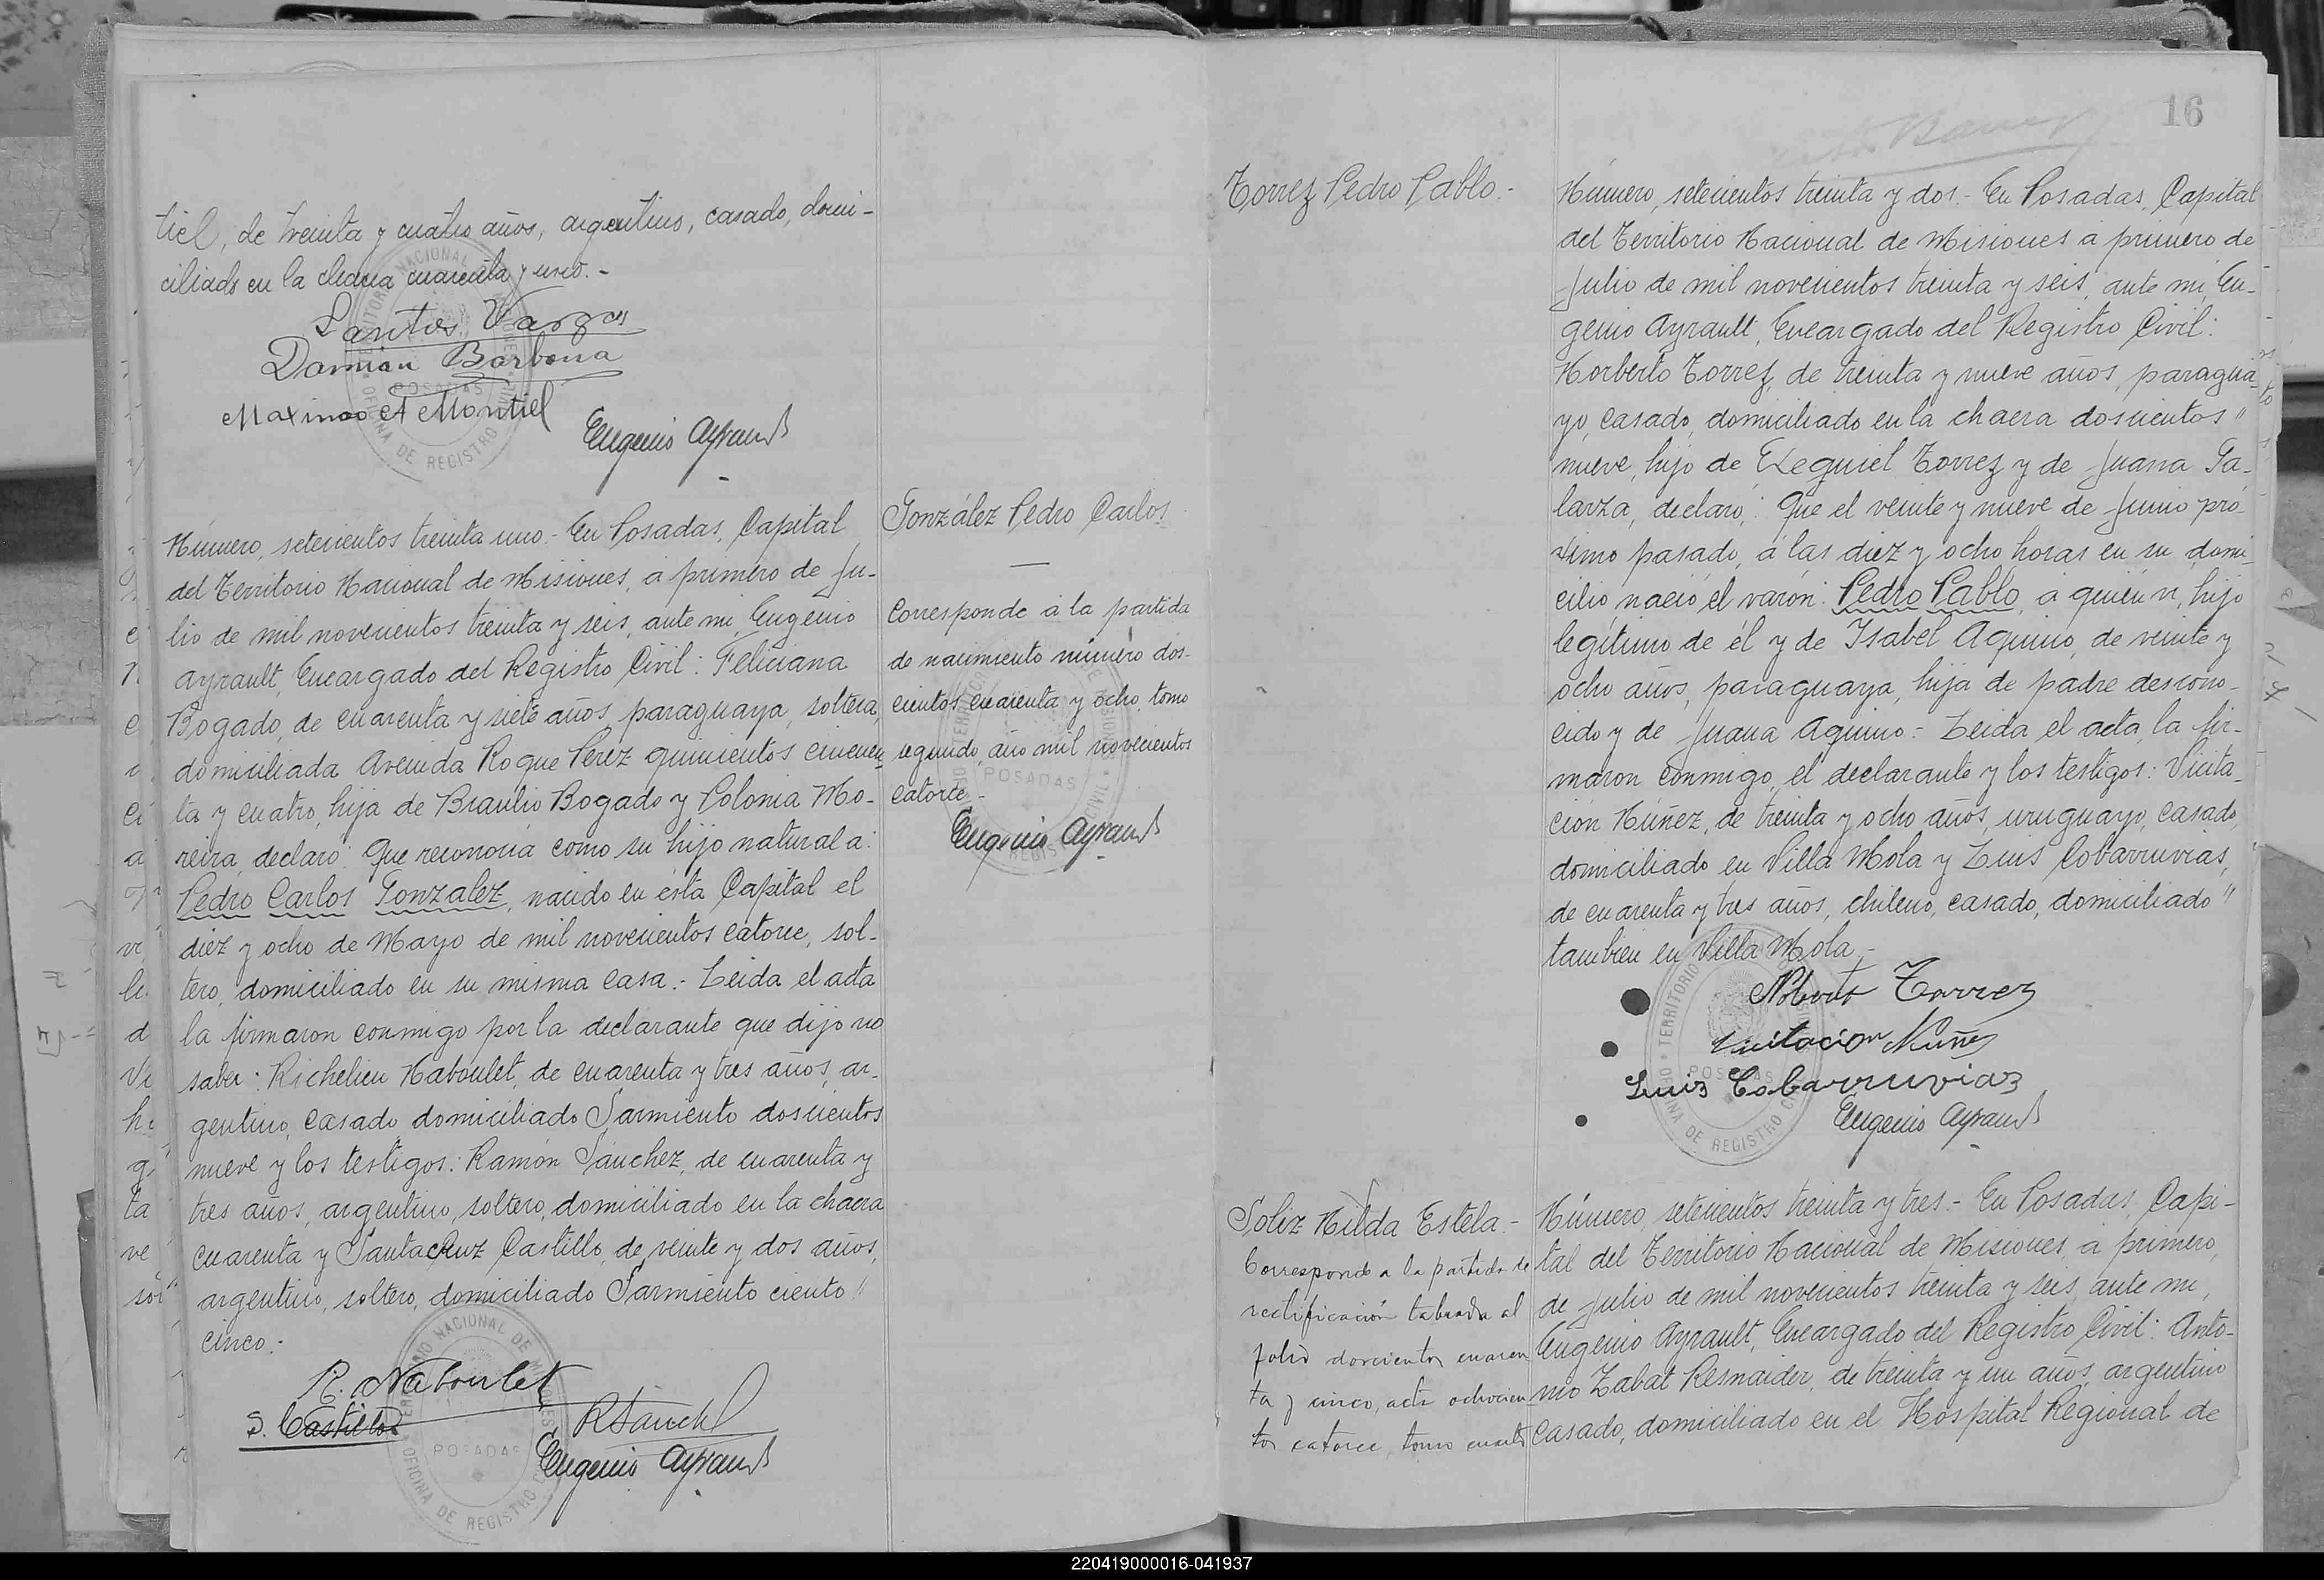 tiel, de treinta y cuatro años, argentino, casado, domi-
ciliado en la chacra cuarenta y uno.-
Santos Vargas
Damian Barbona
Maximo A Montiel
Eugenio Ayrault
Número, setecientos treinta uno.- En Posadas, Capital
del Territorio Nacional de Misiones, á primero de Ju-
lio de mil novecientos treinta y seis, ante mi, Eugenio
Ayrault, Encargado del Registro Civil: Feliciana
Bogado, de cuarenta y siete años, paraguaya, soltera,
domiciliada Avenida Roque Perez quinientos cincuen-
ta y cuatro, hija de Braulio Bogado y Polonia Mo-
reira, declaró: Que reconocia como su hijo natural a:
Pedro Carlos Gonzalez, nacido en ésta Capital el
diez y ocho de Mayo de mil novecientos catorce, sol-
tero, domiciliado en su misma casa.- Leida el acta
la firmaron conmigo por la declarante que dijo no
saber: Richelieu Naboulet, de cuarenta y tres años, ar-
gentino, casado domiciliado Sarmiento doscientos
nueve y los testigos: Ramón Sánchez, de cuarenta y
tres años, argentino, soltero, domiciliado en la chacra
cuarenta y Santacruz Castillo, de veinte y dos años,
argentino, soltero, domiciliado Sarmiento ciento "
cinco.-
R. Naboulet
S. Castillo
RSanch
Eugenio Ayrault
González Pedro Carlos
—
Corresponde á la partida
de nacimiento número dos-
cientos cuarenta y ocho, tomo
segundo, año mil novecientos
catorce.-
Eugenio Ayrault
16
Torrez Pedro Pablo.-
Número, setecientos treinta y dos.- En Posadas, Capital
del Territorio Nacional de Misiones á primero de
Julio de mil novecientos treinta y seis, ante mi, Eu-
genio Ayrault, Encargado del Registro Civil:
Norberto Torrez, de treinta y nueve años, paragua-
yo, casado, domiciliado en la chacra doscientos "
nueve, hijo de Ezequiel Torrez y de Juana Ga-
larza, declaró: Que el veinte y nueve de Junio pró-
ximo pasado, á las diez y ocho horas en su domi-
cilio, nació el varón: Pedro Pablo, a quién vi, hijo
legítimo de él y de Isabel Aquino, de veinte y
ocho años, paraguaya, hija de padre descono-
cido y de Juana Aquino.- Leida el acta, la fir-
maron conmigo, el declarante y los testigos: Vicita-
ción Núñez, de treinta y ocho años, uruguayo, casado,
domiciliado en Villa Mola y Luis Cobarruvias,
de cuarenta y tres años, chileno, casado, domiciliado "
tambien en Villa Mola.-
Norbert Torrez
Vicitacion Nuñez
Luis Cobarruvias
Eugenio Ayrault
Soliz Hilda Estela.-
Corresponde a la partida de
rectificación labrada al
folio doscientos cuaren
ta y cinco, acta ochocien
tos catorce, tomo cuarto
Número, setecientos treinta y tres.- En Posadas, Capi-
tal del Territorio Nacional de Misiones, á primero,
de Julio de mil novecientos treinta y seis, ante mi,
Eugenio Ayrault, Encargado del Registro Civil: Anto-
nio Zabat Resnaider, de treinta y un años, argentino
casado, domiciliado en el Hospital Regional de
220419000016-041937